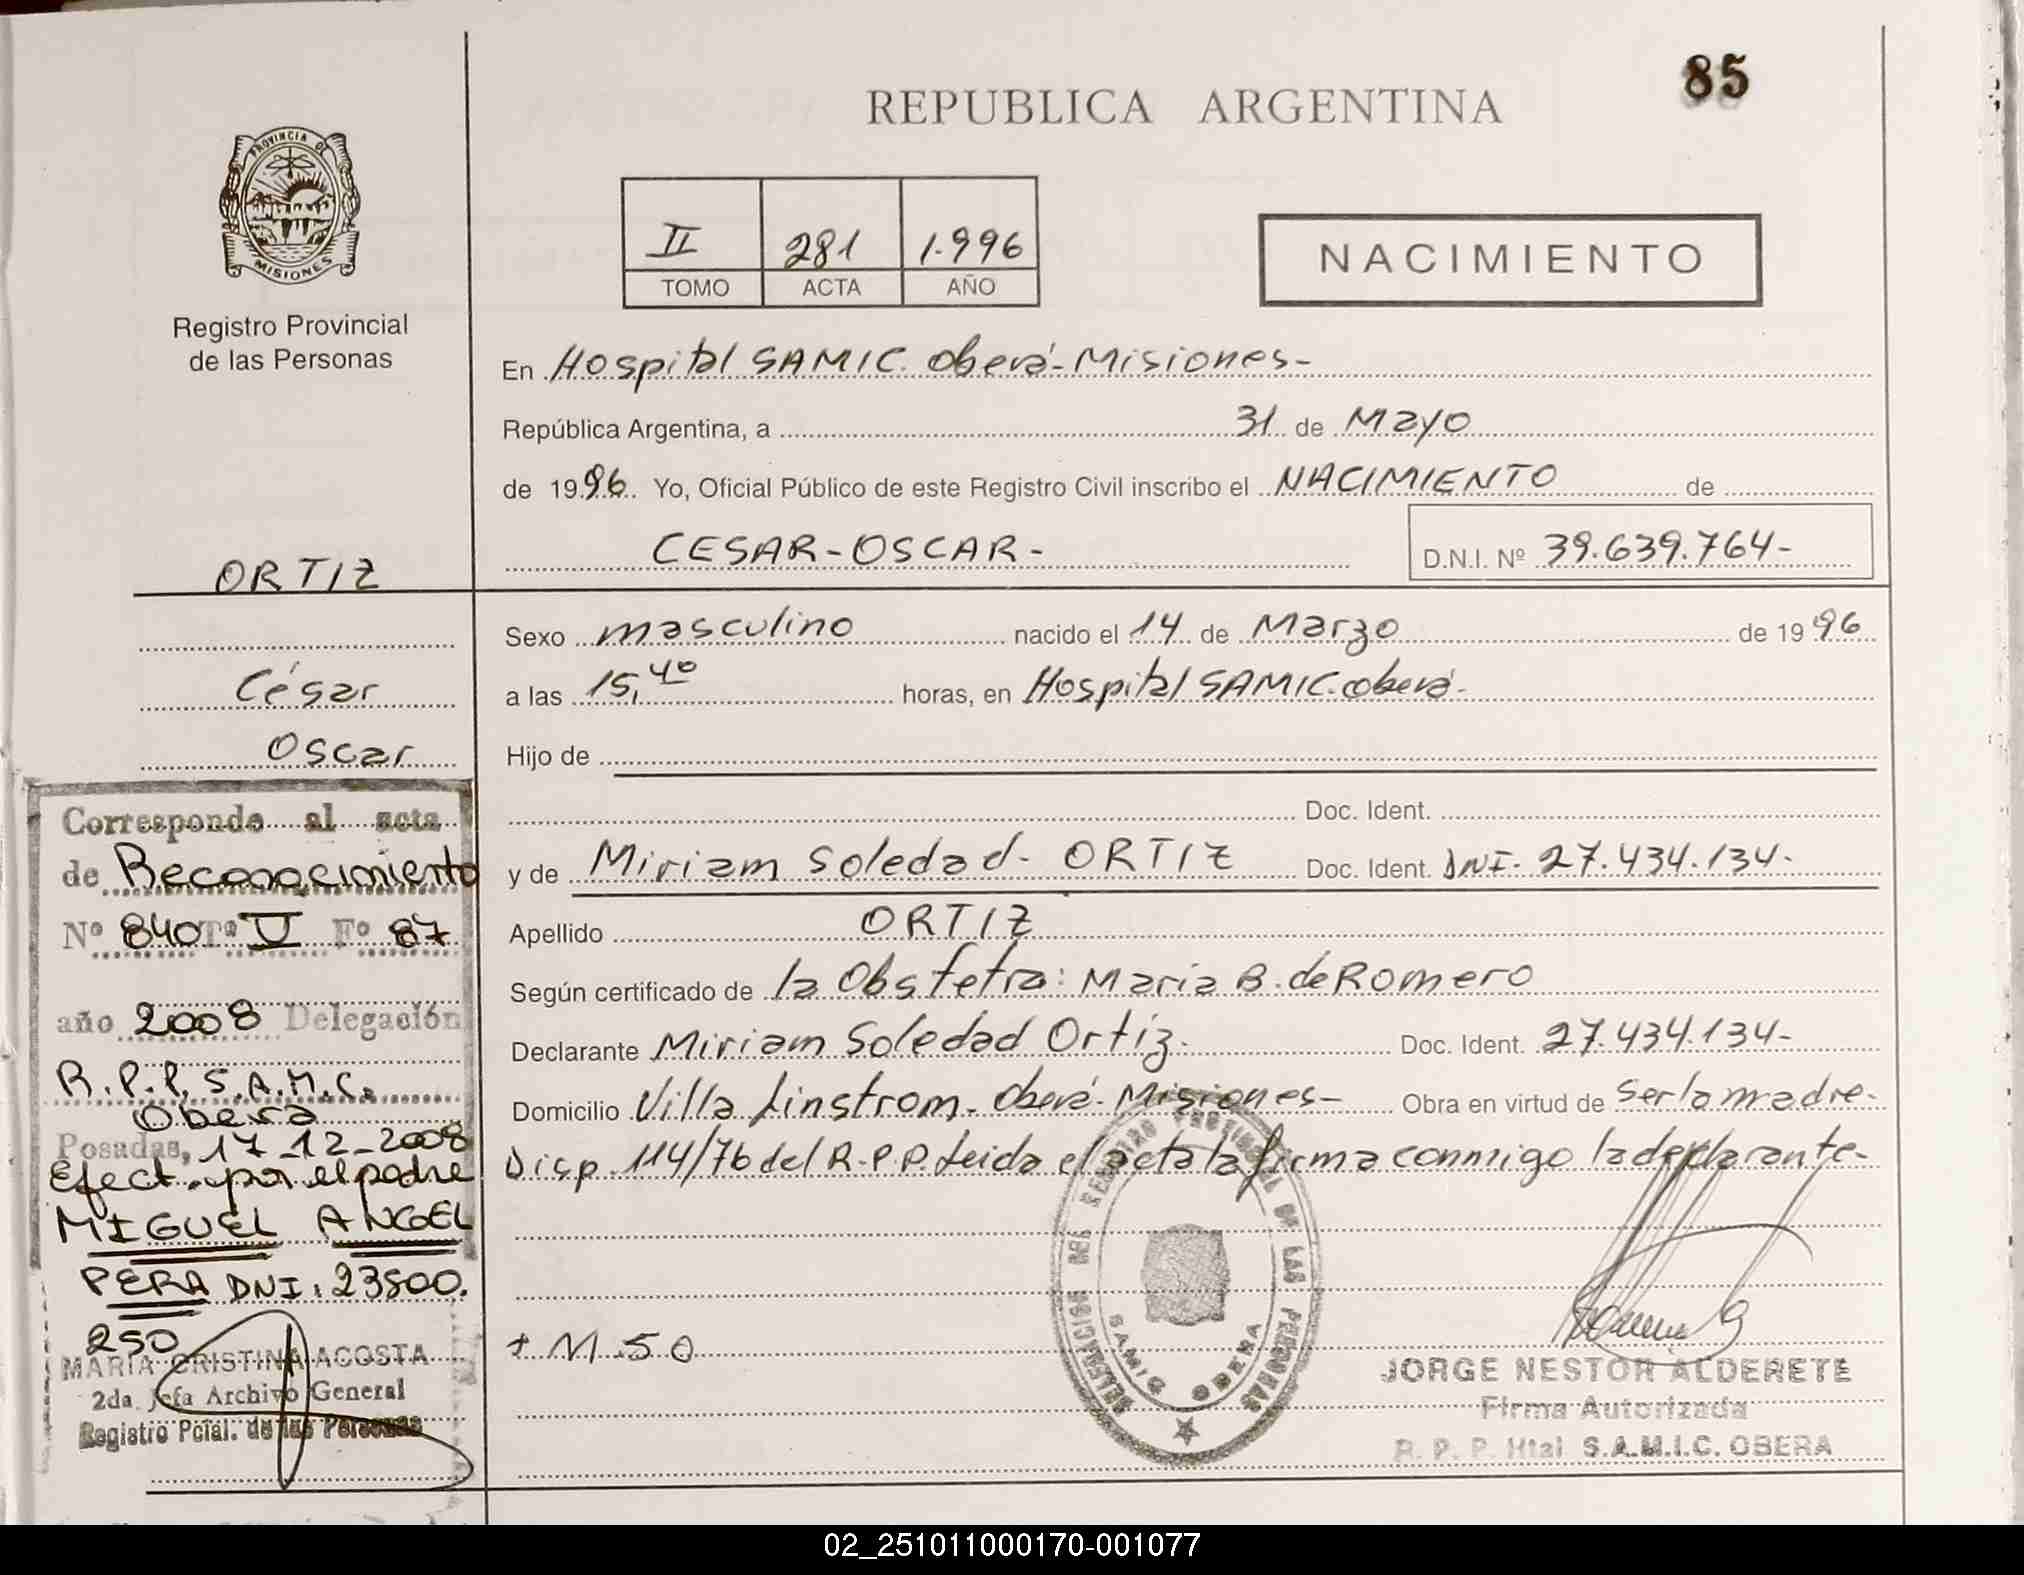 85
REPUBLICA ARGENTINA
PROVINCIA DE
MISIONES
Registro Provincial
de las Personas
II 281 1.996
TOMO ACTA AÑO
NACIMIENTO
En Hospital SAMIC. Oberá-Misiones-
República Argentina, a 31 de Mayo
de 1996. Yo, Oficial Público de este Registro Civil inscribo el NACIMIENTO de
CESAR-OSCAR-
D.N.I. Nº 39.639.764-
ORTIZ
César
Oscar
Sexo masculino nacido el 14 de Marzo de 1996
a las 15,40 horas, en Hospital SAMIC.oberá-
Hijo de
Doc. Ident.
y de Miriam Soledad- ORTIZ Doc. Ident. DNI- 27.434.134-
Apellido ORTIZ
Según certificado de la Obstetra: Maria B. de Romero
Declarante Miriam Soledad Ortiz. Doc. Ident. 27.434.134-
Domicilio Villa Linstrom- Oberá-Misiones- Obra en virtud de Ser la madre-
Disp. 114/76 del R.P.P. Leida el acta la firma conmigo la declarante-
+ M 50
Corresponde al acta
de Reconocimiento
Nº 840 Tº V Fº 87
año 2008 Delegación
R.P.P. S.A.M.C.
Obera
Posadas, 17-12-2008
Efect. por el padre
MIGUEL ANGEL
PERA DNI: 23800.
250
MARIA CRISTINA ACOSTA
2da. Jefa Archivo General
Registro Pcial. de las Personas
SAMIC OBERA
JORGE NESTOR ALDERETE
Firma Autorizada
R. P. P. Htal S.A.M.I.C. OBERA
02_251011000170-001077